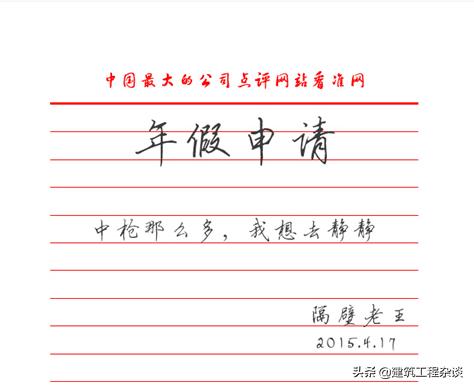 中国最大的公司点评网站看准网
年假申请
中枪那么多，我想去静静
隔壁老王
2015.4.17
头条@建筑工程杂谈